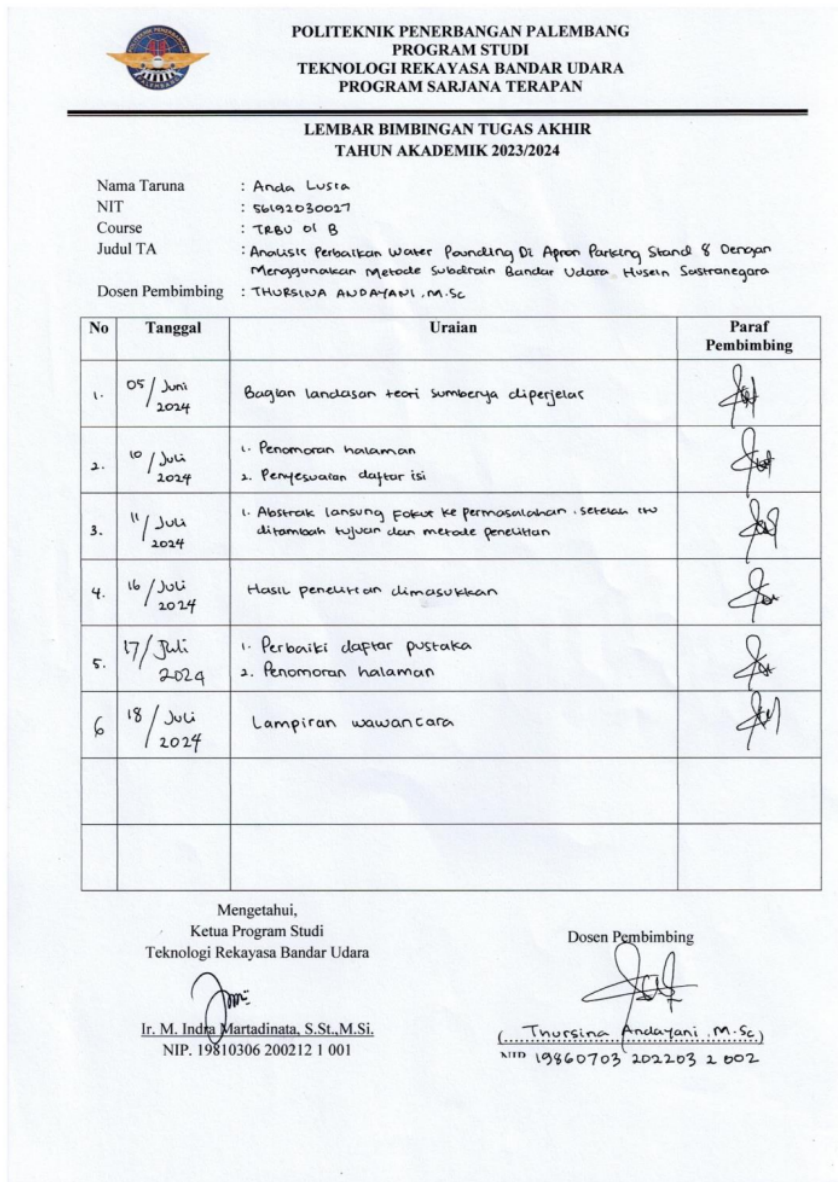 POLITEKNIK PENERBANGAN PALEMBANG
PROGRAM STUDI
TEKNOLOGI REKAYASA BANDAR UDARA
PROGRAM SARJANA TERAPAN
LEMBAR BIMBINGAN TUGAS AKHIR
TAHUN AKADEMIK 2023/2024
Nama Taruna : Anda Lusia
NIT : 56192030027
Course : TRBU 01 B
Judul TA : Analisis Perbaikan Water Pounding Di Apron Parking Stand 8 Dengan
Menggunakan Metode Subdrain Bandar Udara Husein Sastranegara
Dosen Pembimbing : THURSINA ANDAYANI, M.Sc
No Tanggal Uraian Paraf
Pembimbing
1. 05/Juni 2024 Bagian landasan teori sumbernya diperjelas
2. 10/Juli 2024 1. Penomoran halaman
2. Penyesuaian daftar isi
3. 11/Juli 2024 1. Abstrak lansung fokus ke permasalahan. setelah itu
ditambah tujuan dan metode penelitian
4. 16/Juli 2024 Hasil penelitian dimasukkan
5. 17/Juli 2024 1. Perbaiki daftar pustaka
2. Penomoran halaman
6 18/Juli 2024 Lampiran wawancara
Mengetahui,
Ketua Program Studi
Teknologi Rekayasa Bandar Udara
Ir. M. Indra Martadinata, S.St.,M.Si.
NIP. 19810306 200212 1 001
Dosen Pembimbing
(Thursina Andayani, M.Sc)
NIP 19860703 202203 2 002